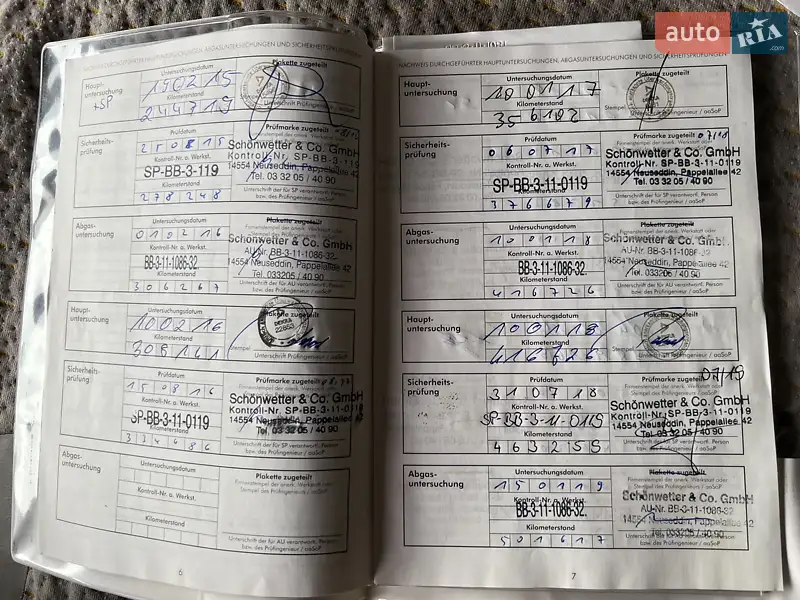 auto RIA .com
NACHWEIS DURCHGEFÜHRTER HAUPTUNTERSUCHUNGEN, ABGASUNTERSUCHUNGEN UND SICHERHEITSPRÜFUNGEN
Haupt-
untersuchung
+SP
Untersuchungsdatum
190215
Kilometerstand
244719
Plakette zugeteilt
Unterschrift Prüfingenieur / aaSoP
Sicherheits-
prüfung
Prüfdatum
250815
Kontroll-Nr. a. Werkst.
SP-BB-3-119
Kilometerstand
278248
Prüfmarke zugeteilt
Schönwetter & Co. GmbH
Kontroll-Nr. SP-BB-3-119
14554 Neuseddin, Pappelallee 42
Tel. 03 32 05 / 40 90
Unterschrift der für SP verantwortl. Person
bzw. des Prüfingenieurs / aaSoP
Abgas-
untersuchung
Untersuchungsdatum
010216
Kontroll-Nr. a. Werkst.
BB-3-11-1086-32.
Kilometerstand
306267
Plakette zugeteilt
Schönwetter & Co. GmbH
AU-Nr. BB-3-11-1086-32
14554 Neuseddin, Pappelallee 42
Tel. 033205 / 40 90
Unterschrift der für AU verantwortl. Person
bzw. des Prüfingenieurs / aaSoP
Haupt-
untersuchung
Untersuchungsdatum
100216
Kilometerstand
Plakette zugeteilt
DEKRA
22853
Stempel
Unterschrift Prüfingenieur / aaSoP
Sicherheits-
prüfung
Prüfdatum
150816
Kontroll-Nr. a. Werkst.
SP-BB-3-11-0119
Kilometerstand
334686
Prüfmarke zugeteilt
Firmenstempel der anerk. Werkstatt oder
Schönwetter & Co. GmbH
Kontroll-Nr. SP-BB-3-11-0119
14554 Neuseddin, Pappelallee 42
Tel. 03 32 05 / 40 90
Unterschrift der für SP verantwortl. Person
bzw. des Prüfingenieurs / aaSoP
Abgas-
untersuchung
Untersuchungsdatum
Kontroll-Nr. a. Werkst.
Kilometerstand
Plakette zugeteilt
Firmenstempel der anerk. Werkstatt oder
Stempel des Prüfingenieurs / aaSoP
Unterschrift der für AU verantwortl. Person
bzw. des Prüfingenieurs / aaSoP
6
NACHWEIS DURCHGEFÜHRTER HAUPTUNTERSUCHUNGEN, ABGASUNTERSUCHUNGEN UND SICHERHEITSPRÜFUNGEN
Haupt-
untersuchung
Untersuchungsdatum
100117
Kilometerstand
356102
Plakette zugeteilt
Stempel
Unterschrift Prüfingenieur / aaSoP
Sicherheits-
prüfung
Prüfdatum
060717
Kontroll-Nr. a. Werkst.
SP-BB-3-11-0119
Kilometerstand
376679
Prüfmarke zugeteilt 07/18
Schönwetter & Co. GmbH
Kontroll-Nr. SP-BB-3-11-0119
14554 Neuseddin, Pappelallee 42
Tel. 03 32 05 / 40 90
Unterschrift der für SP verantwortl. Person
bzw. des Prüfingenieurs / aaSoP
Abgas-
untersuchung
Untersuchungsdatum
100118
Kontroll-Nr. a. Werkst.
BB-3-11-1086-32.
Kilometerstand
416726
Plakette zugeteilt
Schönwetter & Co. GmbH
AU-Nr. BB-3-11-1086-32
14554 Neuseddin, Pappelallee 42
Tel. 033205 / 40 90
Unterschrift der für AU verantwortl. Person
bzw. des Prüfingenieurs / aaSoP
Haupt-
untersuchung
Untersuchungsdatum
100118
Kilometerstand
416726
Plakette zugeteilt
Stempel
Unterschrift Prüfingenieur / aaSoP
Sicherheits-
prüfung
Prüfdatum
310718
Kontroll-Nr. a. Werkst.
SP-BB-3-11-0119
Kilometerstand
463255
Prüfmarke zugeteilt 07/19
Firmenstempel der anerk. Werkstatt oder
Schönwetter & Co. GmbH
Kontroll-Nr. SP-BB-3-11-0119
14554 Neuseddin, Pappelallee 42
Tel. 03 32 05 / 40 90
Unterschrift der für SP verantwortl. Person
bzw. des Prüfingenieurs / aaSoP
Abgas-
untersuchung
Untersuchungsdatum
150119
Kontroll-Nr. a. Werkst.
BB-3-11-1086-32.
Kilometerstand
501617
Plakette zugeteilt
Firmenstempel der anerk. Werkstatt oder
Stempel des Prüfingenieurs / aaSoP
Schönwetter & Co. GmbH
AU-Nr. BB-3-11-1086-32
14554 Neuseddin, Pappelallee 42
Tel. 033205 / 40 90
Unterschrift der für AU verantwortl. Person
bzw. des Prüfingenieurs / aaSoP
7